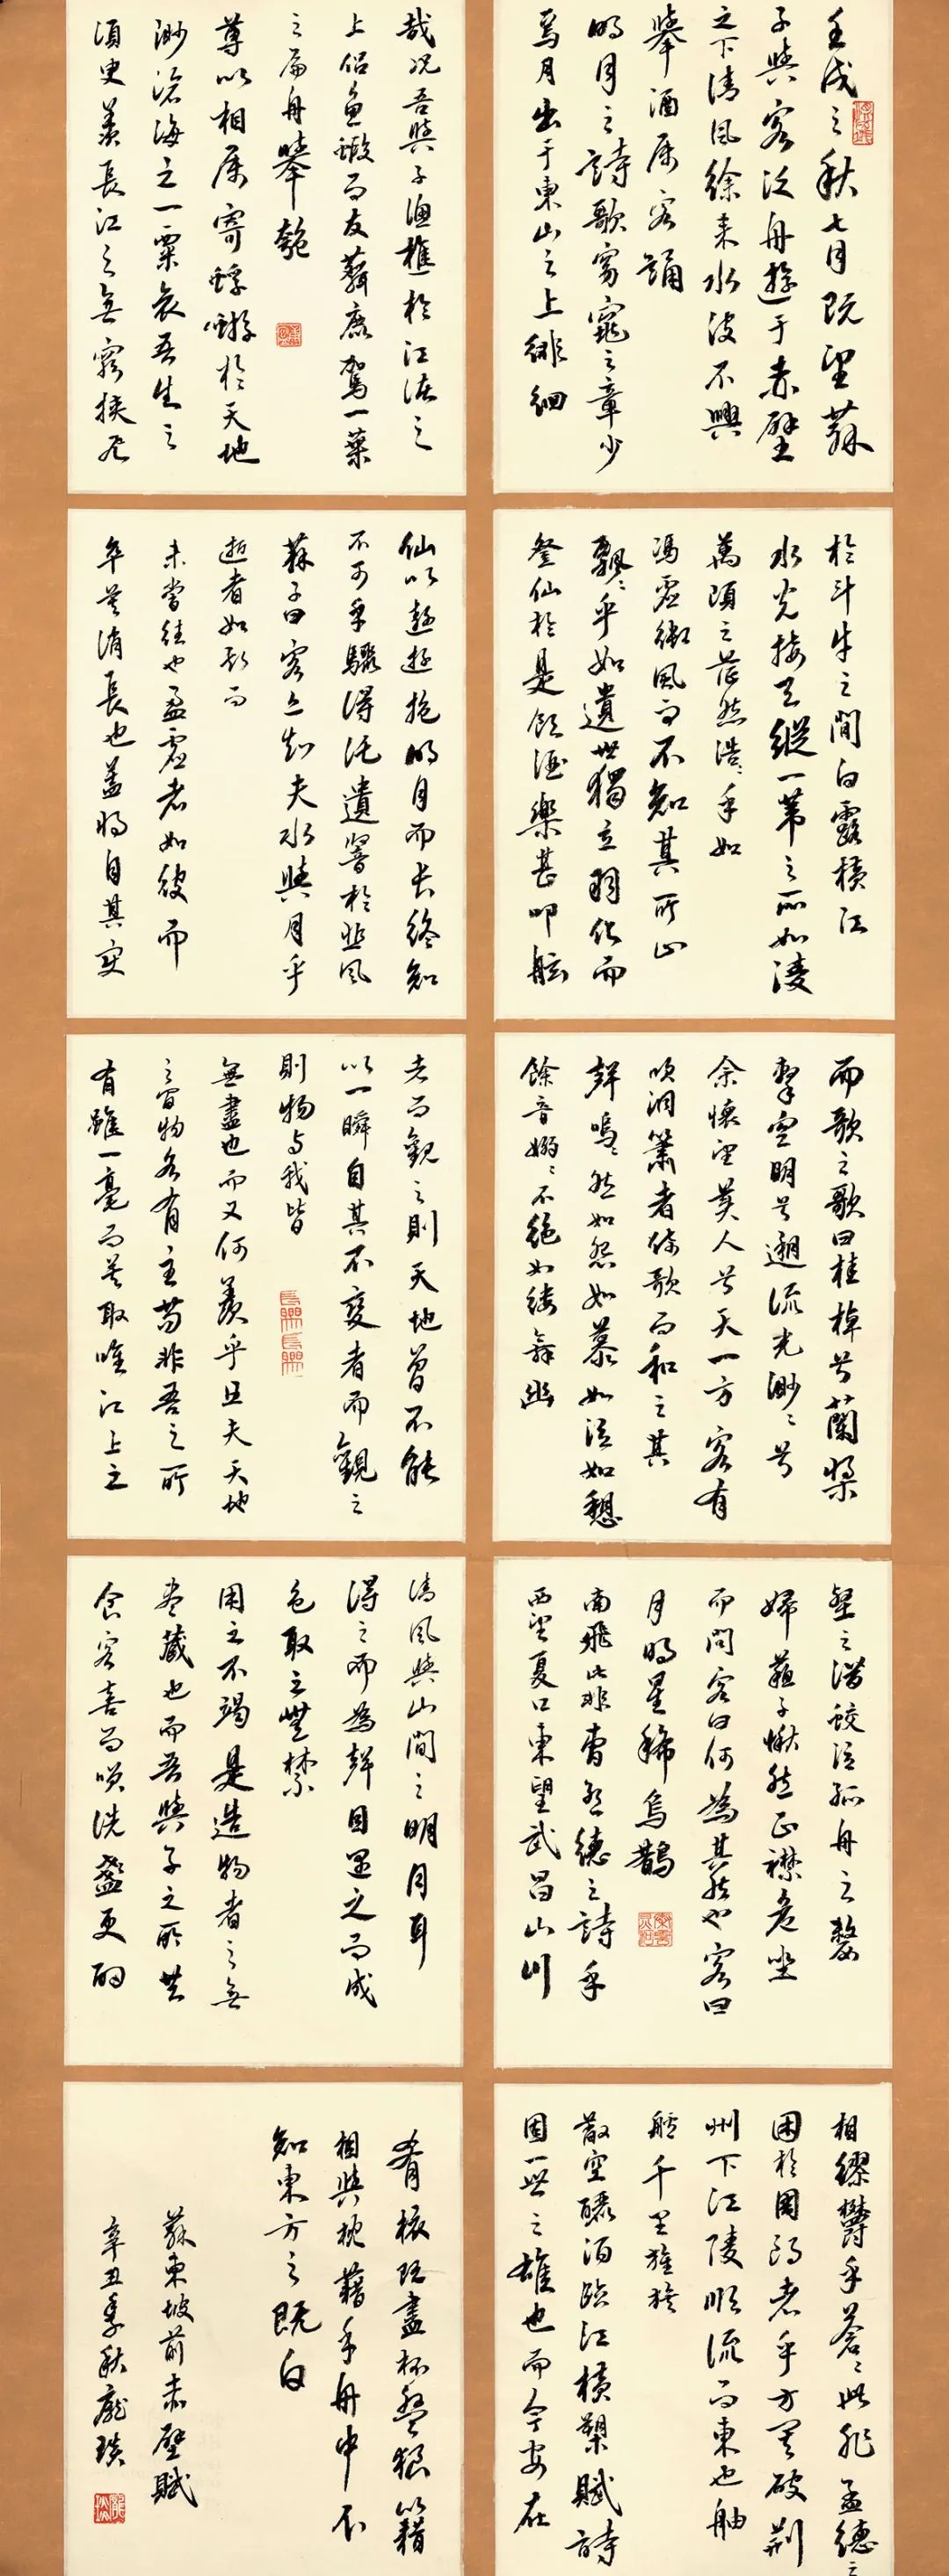 壬戌之秋七月既望蘇
子與客泛舟遊于赤壁
之下清風徐來水波不興
舉酒屬客誦
明月之詩歌窈窕之章少
焉月出于東山之上徘徊
於斗牛之間白露橫江
水光接天縱一葦之所如淩
萬頃之茫然浩々乎如
馮虛御風而不知其所止
飄々乎如遺世獨立羽化而
登仙於是飲酒樂甚叩舷
而歌之歌曰桂棹兮蘭槳
擊空明兮遡流光渺々兮
余懷望美人兮天一方客有
吹洞簫者倚歌而和之其
聲嗚々然如怨如慕如泣如愬
餘音嫋々不絕如縷舞幽
壑之潛蛟泣孤舟之嫠
婦蘇子愀然正襟危坐
而問客曰何為其然也客曰
月明星稀烏鵲
南飛此非曹孟德之詩乎
西望夏口東望武昌山川
相繆鬱乎蒼々此非孟德之
困於周郎者乎方其破荊
州下江陵順流而東也舳
艫千里旌旗
蔽空釃酒臨江橫槊賦詩
固一世之雄也而今安在
哉況吾與子漁樵於江渚之
上侶魚蝦而友麋鹿駕一葉
之扁舟舉匏
尊以相屬寄蜉蝣於天地
渺滄海之一粟哀吾生之
須臾羨長江之無窮挾飛
仙以遨遊抱明月而長終知
不可乎驟得託遺響於悲風
蘇子曰客亦知夫水與月乎
逝者如斯而
未嘗往也盈虛者如彼而
卒莫消長也蓋將自其變
者而觀之則天地曾不能
以一瞬自其不變者而觀之
則物与我皆
無盡也而又何羨乎且夫天地
之間物各有主苟非吾之所
有雖一毫而莫取唯江上之
清風與山間之明月耳
得之而為聲目遇之而成
色取之無禁
用之不竭是造物者之無
盡藏也而吾與子之所共
食客喜而笑洗盞更酌
肴核既盡杯盤狼籍
相與枕藉乎舟中不
知東方之既白
蘇東坡前赤壁賦
辛丑季秋龐